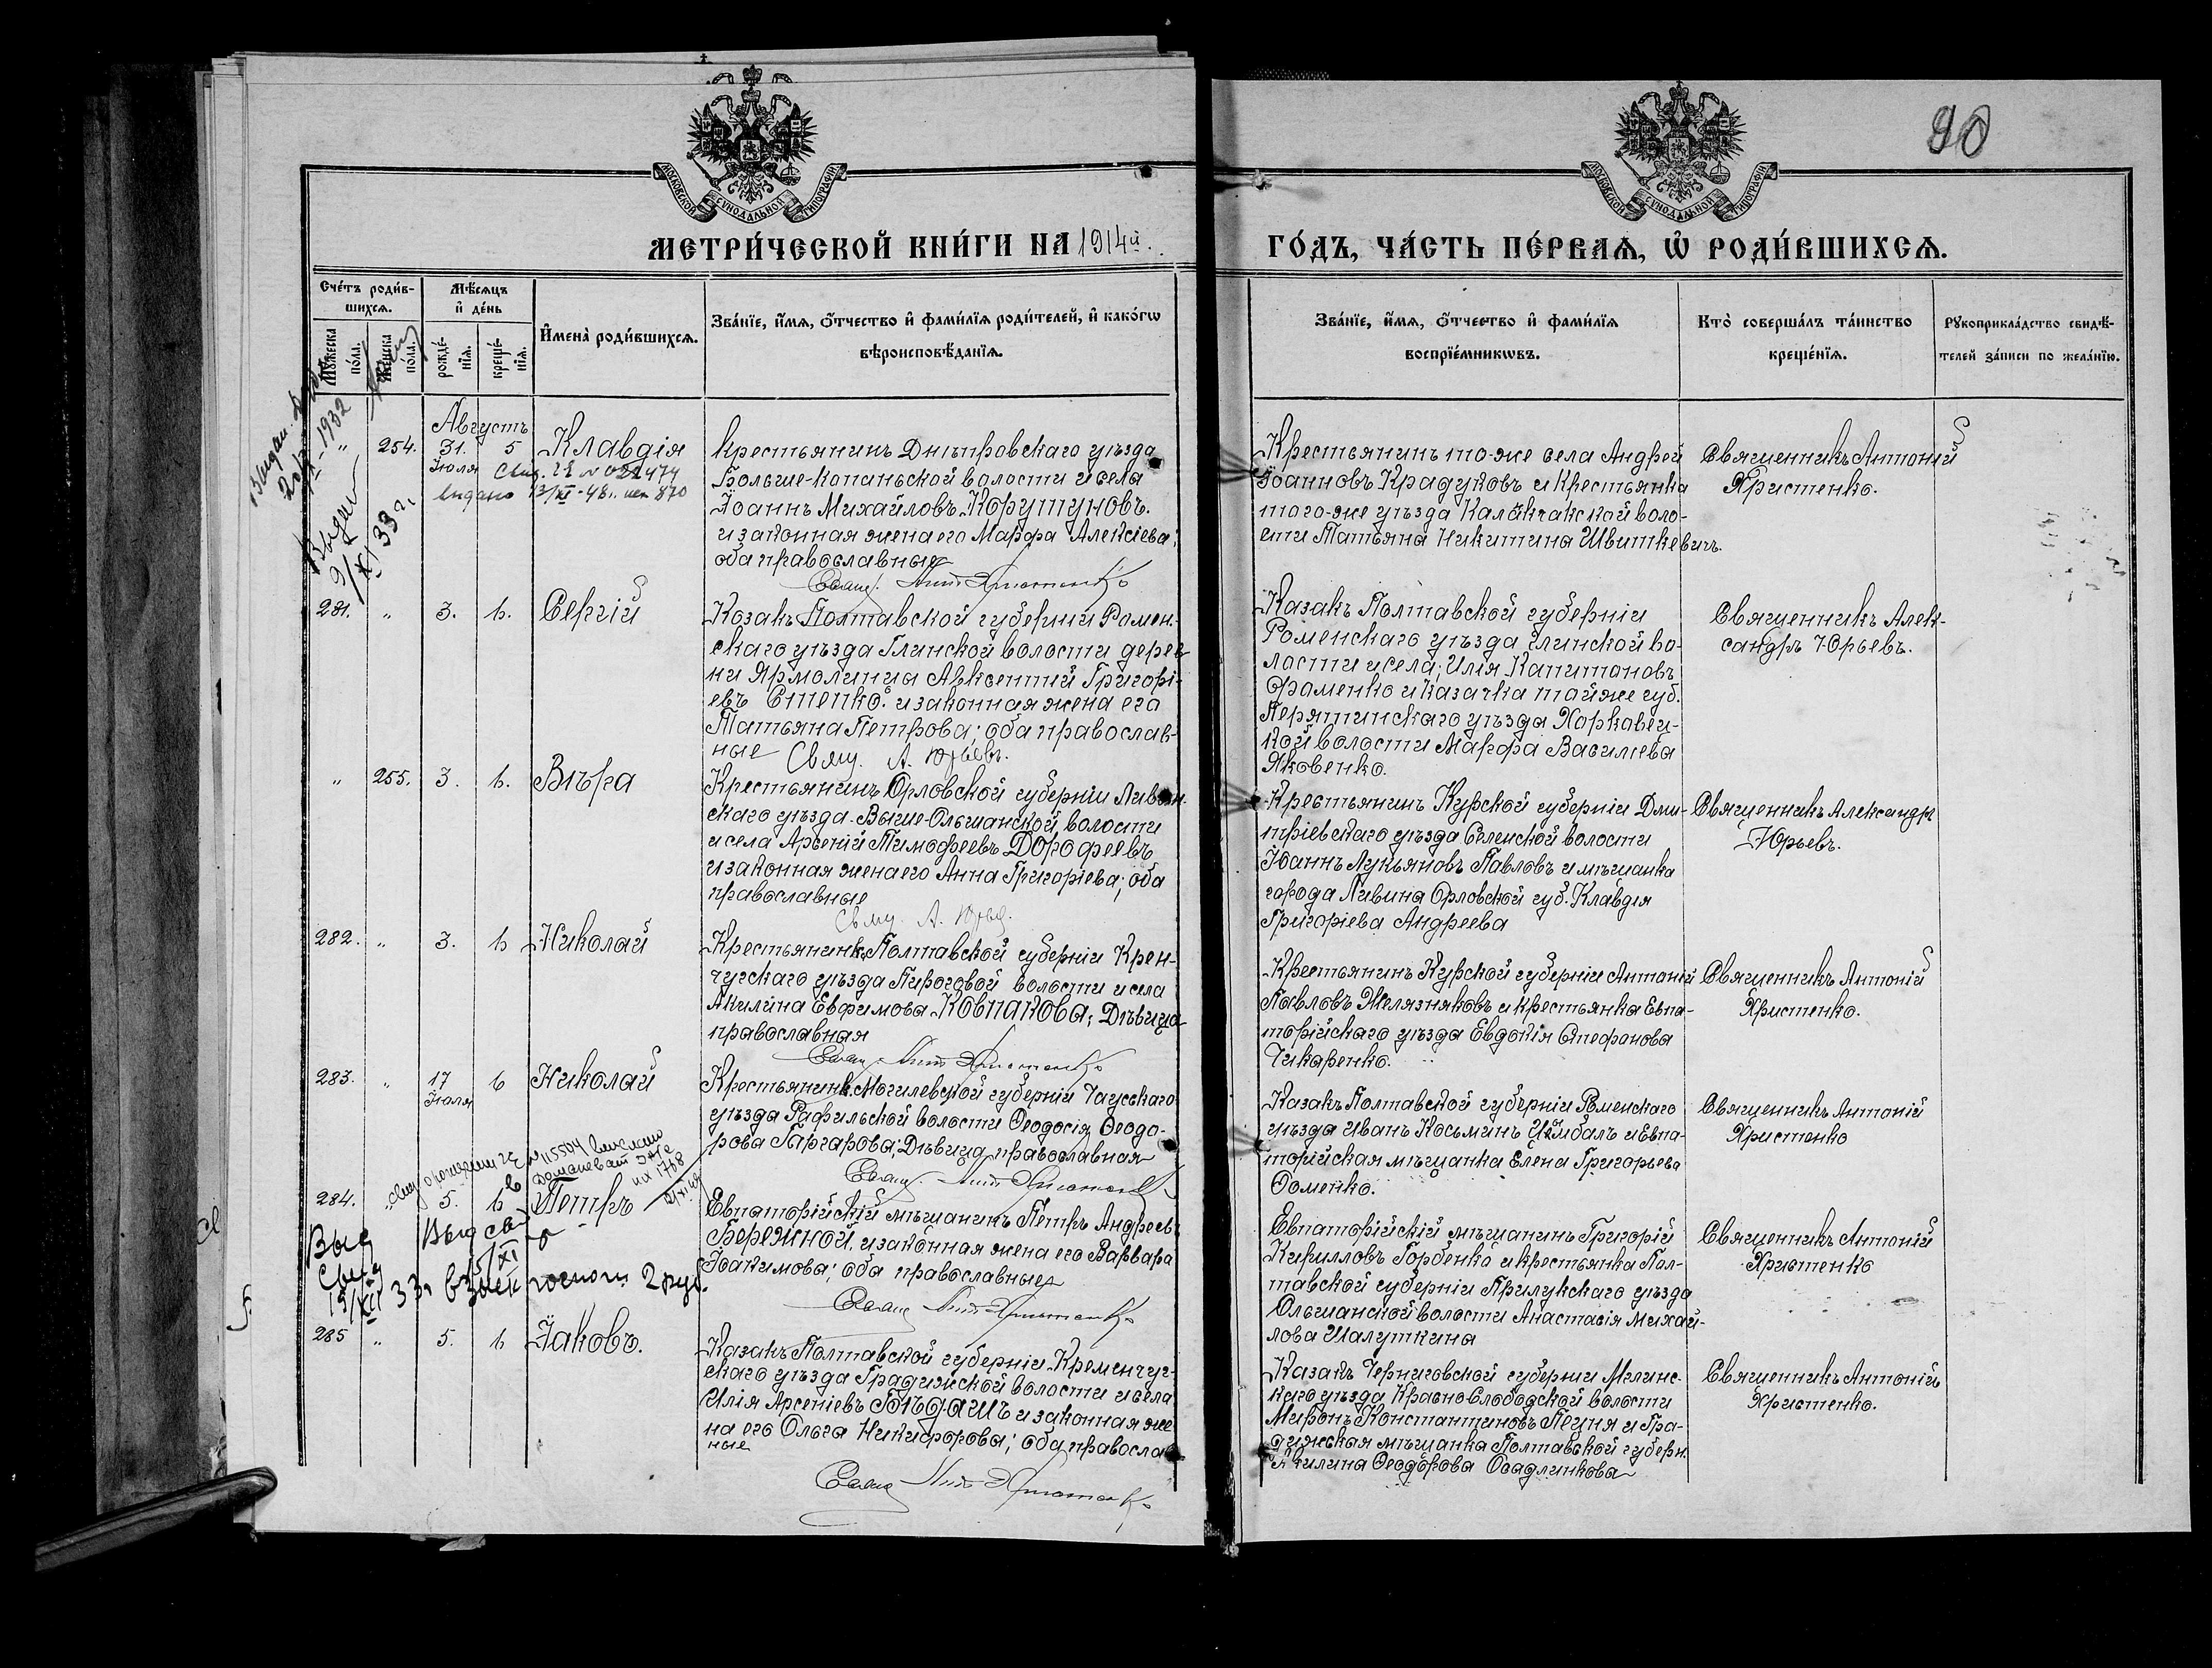 90
МОСКОВСКОЙ СУНОДАЛЬНОЙ ТИПОГРАФІИ
МОСКОВСКОЙ СУНОДАЛЬНОЙ ТИПОГРАФІИ
МЕТРИ́ЧЕСКОЙ КНИ́ГИ НА 1914й.
ГО́ДЪ, ЧА́СТЬ ПЕ́РВАѦ, Ѡ҆ РОДИ́ВШИХСѦ.
Сче́тъ роди́в-
шихсѧ.
Мꙋ́жеска по́ла.
Же́нска по́ла.
Мѣ́сѧцъ
и҆ де́нь
рожде́-
нїѧ.
креще́-
нїѧ.
И҆мена̀ роди́вшихсѧ.
Зва́нїе, и҆́мѧ, ѻ҆́тчество и҆ фами́лїѧ роди́телей, и҆ како́гѡ
вѣроисповѣ́данїѧ.
Зва́нїе, и҆́мѧ, ѻ҆́тчество и҆ фами́лїѧ
воспрїе́мникѡвъ.
Кто̀ соверша́лъ та́инство
креще́нїѧ.
Рꙋкоприкла́дство свидѣ́-
телей за́писи по жела́нїю.
Августъ
" 254. 31. 5 Клавдія
Іюля
Свид. № 022474
выдано 12/XI-48г. 870
1932
Выдан
9/XI 33 г.
Крестьянинъ Днѣпровскаго уѣзда
Больше-Копаньской волости и села
Іоаннъ Михайловъ Корутуновъ.
и законная жена его Марфа Алексіева;
оба православные
Свящ. Ант. Христенко
Крестьянинъ то-же села Андрей
Іоанновъ Крадуковъ и Крестьянка
того-же уѣзда Каланчакской воло-
сти Татьяна Никитина Швиткевичъ.
Священникъ Антоній
Христенко.
281. " 3. 6. Сергій
Козакъ Полтавской губерніи Ромен-
скаго уѣзда Глинской волости дерев
ни Ярмолинцы Авксентій Григорі-
евъ Степко. и законная жена его
Татьяна Петрова; оба православ-
ные Свящ. А. Юрьевъ.
Казакъ Полтавской губерніи
Роменскаго уѣзда Глинской во-
лости и села; Илія Капитоновъ
Фоменко и казачка той же губ.
Пирятинскаго уѣзда Харковец-
кой волости Марфа Василіева
Яковенко.
Священникъ Алек-
сандръ Юрьевъ.
" 255. 3. 6. Вѣра
Крестьянинъ Орловской губерніи Ливен.
скаго уѣзда-Выше-Ольшанской волости
и села Арсеній Тимофеевъ Дорофеевъ
и законная жена его Анна Григоріева; оба
православные
Свящ. А. Юрьев.
Крестьянинъ Курской губерніи Дми-
тріевскаго уѣзда Селенской волости
Іоаннъ Лукьяновъ Павловъ и мѣщанка
города Ливина Орловской губ. Клавдія
Григоріева Андреева
Священникъ Александр
Юрьевъ.
282. " 3. 6 Николай
Крестьянинк. Полтавской губерніи Крен-
чугскаго уѣзда Пироговой волости и села
Акилина Евфимова Ковпакова; Дѣвица
православная
Свящ. Ант. Христенко
Крестьянинъ Курской губерніи Антоній
Павловъ Желязняковъ и крестьянка Евпа-
торійскаго уѣзда Евдокія Стефанова
Чикаренко.
Священникъ Антоній
Христенко.
283. " 17 6 Николай
Іюля
Крестьянинк. Могилевской губерніи Чаусскаго
уѣзда Рафильской волости Ѳеодосія Ѳеодо-
рова Гаргарова; Дѣвица, православная
Свящ. Ант. Христенко
Казакъ Полтавской губерніи Роменскаго
уѣзда Иванъ Косьминъ Цимбалъ и Евпа-
торійская мѣщанка Елена Григорьева
Ѳоменко.
Священникъ Антоній
Христенко
№ 115504
на 1768
284. " 5. 6 Петръ
Евпаторійскій мѣщанинъ Петръ Андреевъ
Бережной. и законная жена его Варвара
Іоакимова; оба православные
Свящ Ант. Христенко
Евпаторійскій мѣщанинъ Григорій
Кирилловъ Горбенко и крестьянка Пол-
тавской губерніи Прилукскаго уѣзда
Ольшанской волости Анастасія Михай-
лова Шалуткина
Священникъ Антоній
Христенко
Выд
свид
19/XII 33г взыск госпош 2 руб.
285 " 5. 6 Іаковъ.
Казакъ Полтавской губерніи Кременчуг-
скаго уѣзда Градижской волости и села
Илія Арсеніевъ Бѣдашъ и законная же
на его Ольга Никифорова; оба православ
ные
Свящ Ант. Христенко
Казакъ Черниговской губерніи Мглинс-
каго уѣзда Красно-Слободской волости
Миронъ Константиновъ Пецня и Гра-
дижская мѣщанка Полтавской губерн.
Акилина Ѳеодорова Осадлинкова
Священникъ Антоній
Христенко.